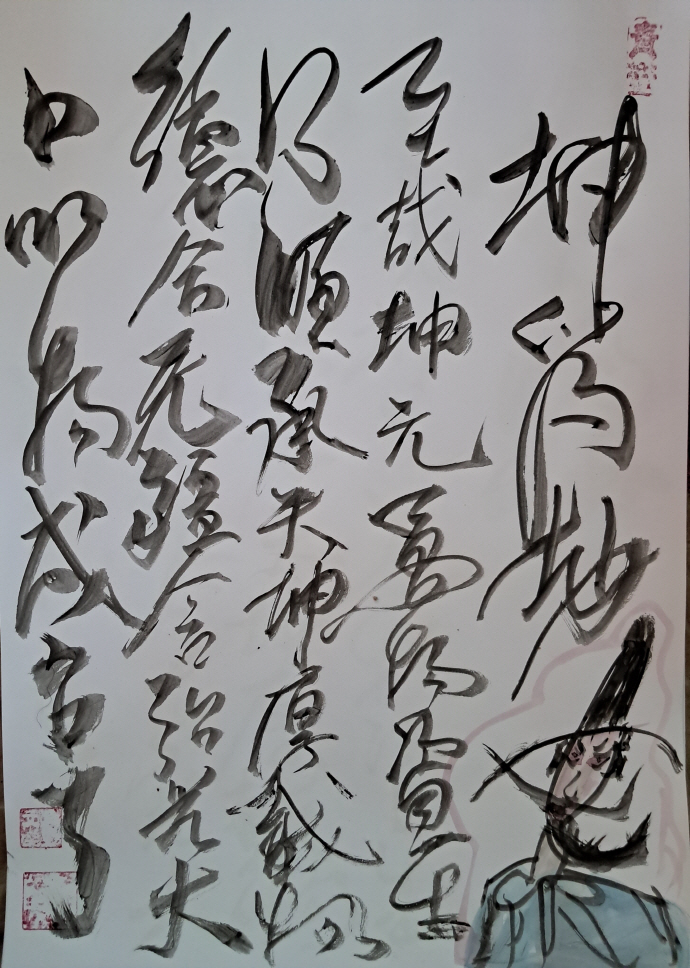 坤為地
至哉坤元萬物資生
乃順承天坤厚載物
德合无疆含弘光大
品物咸亨